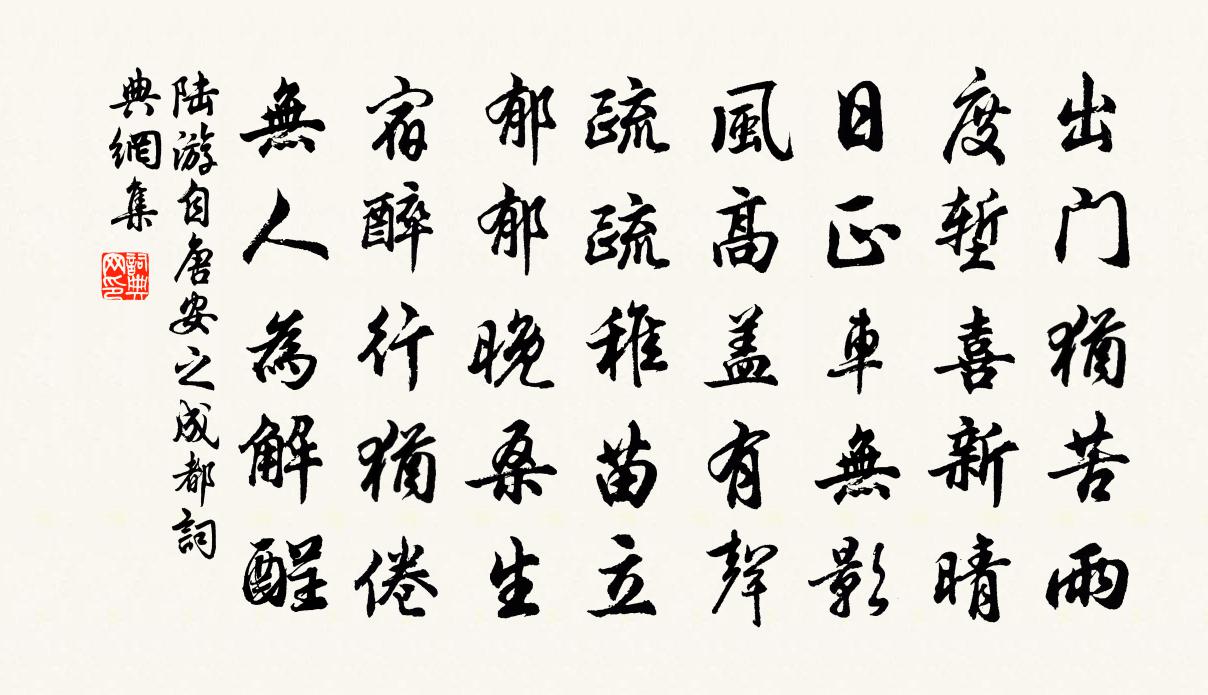 出门猶苦雨
度塹喜新晴
日正車無影
風高盖有聲
疏疏稚苗立
郁郁晚桑生
宿醉行猶倦
無人為解酲
陆游自唐安之成都詞
典網集
詞典
网印